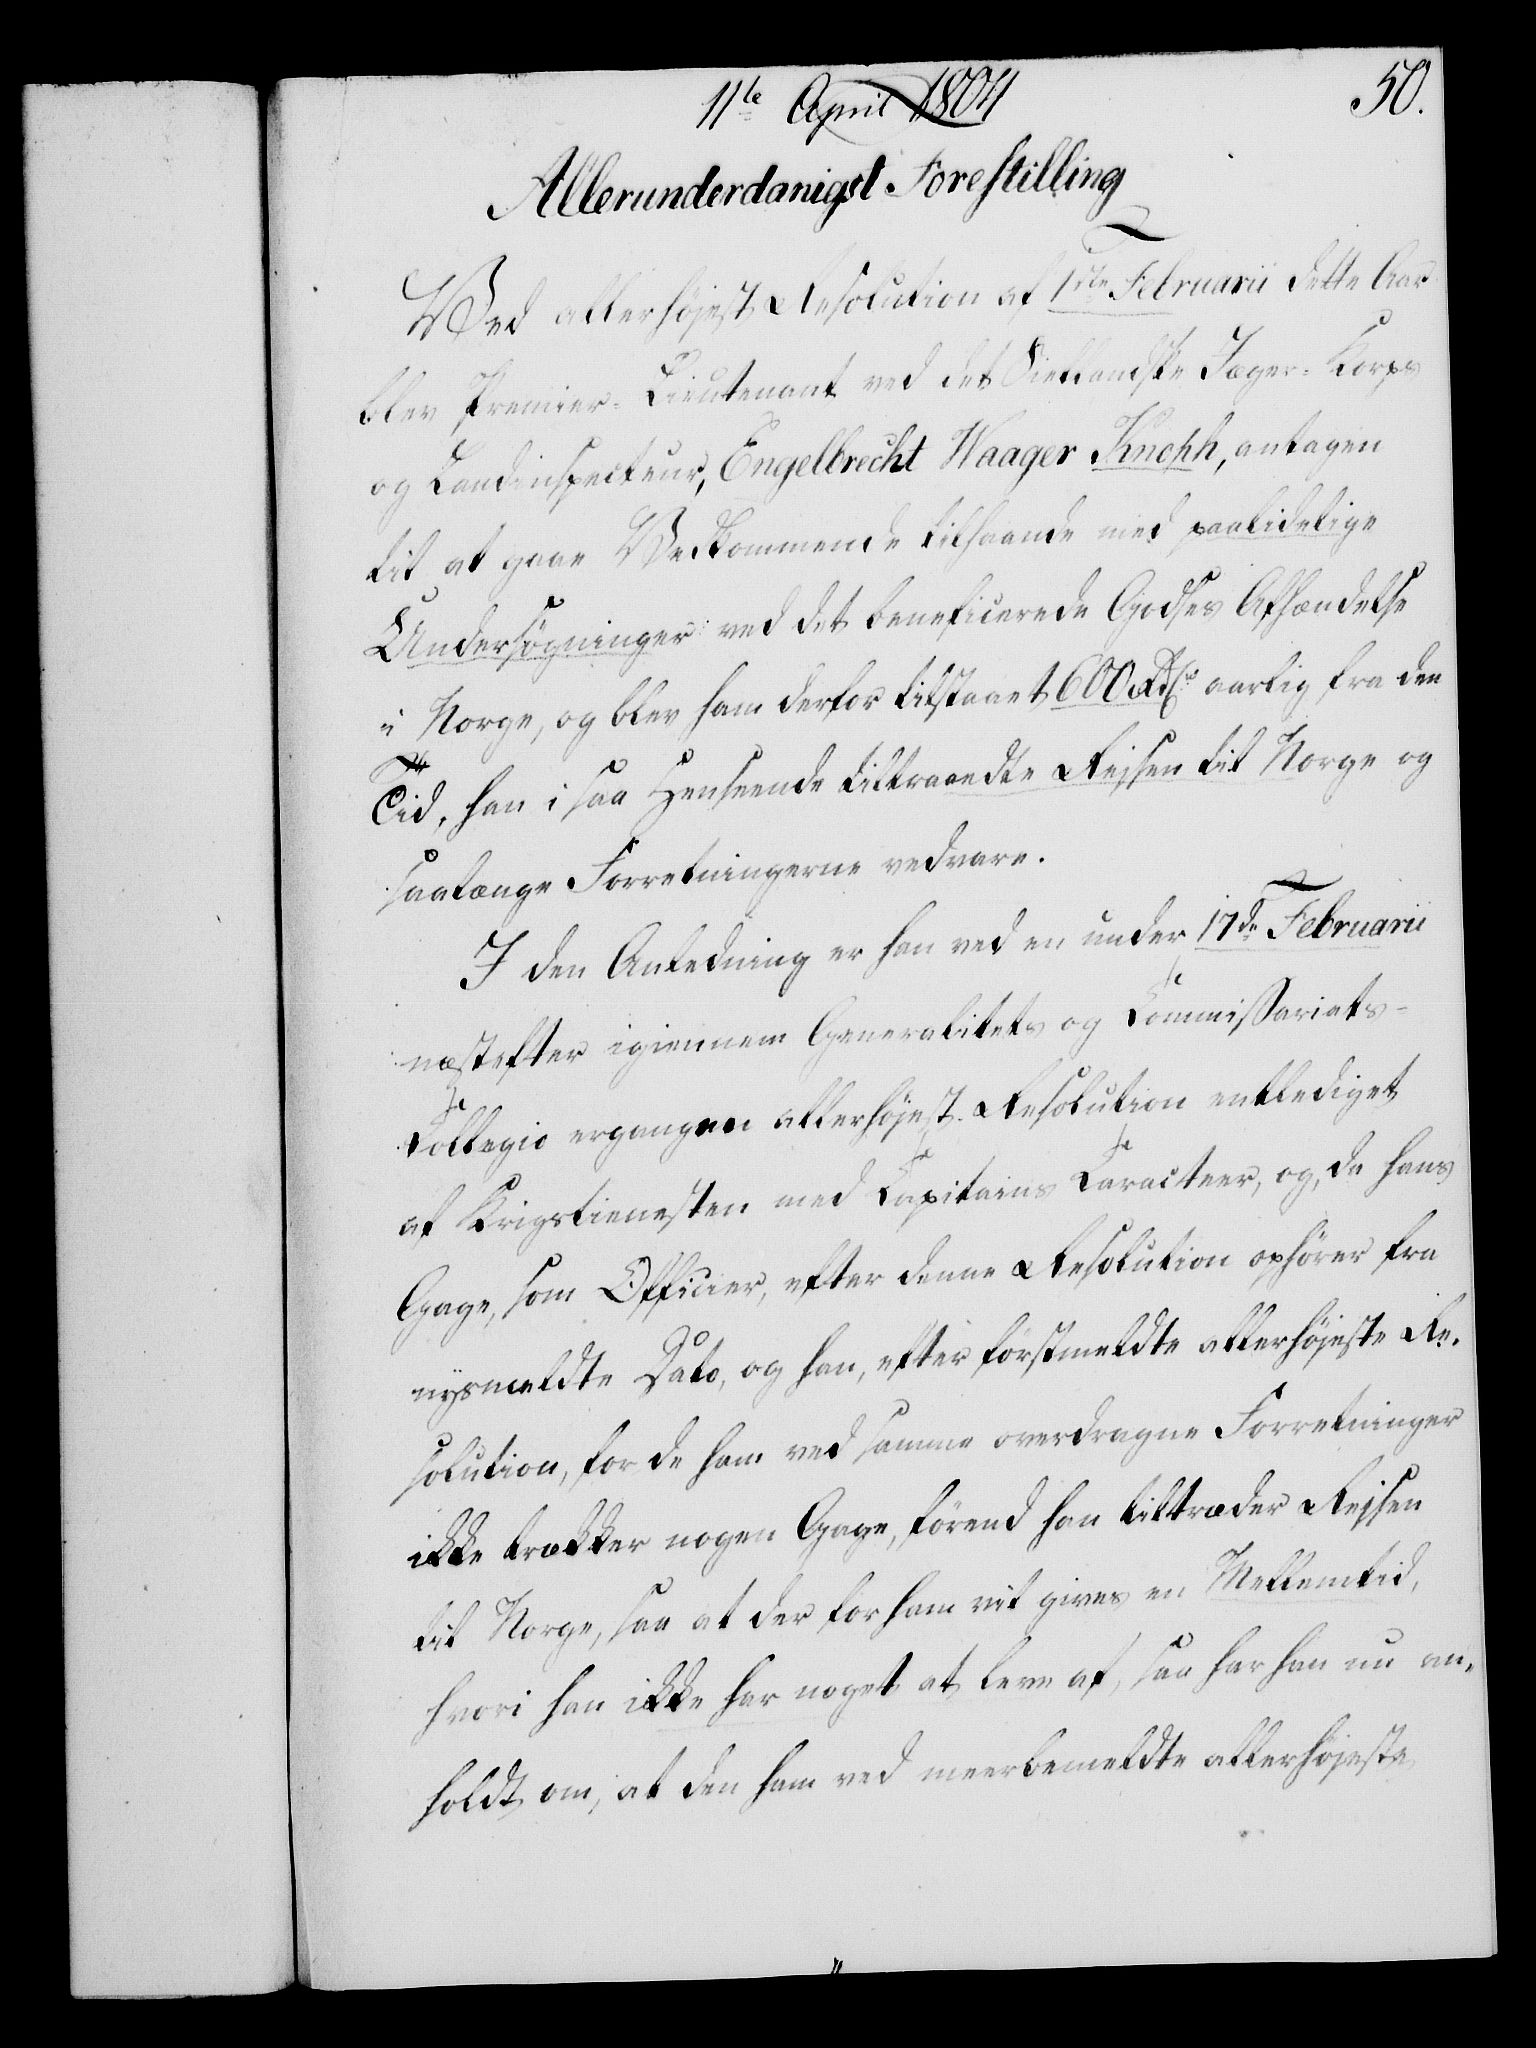 11te April 1804
50.
Allerunderdanigst Forestilling
Ved allerhøjest Resolution af 1ste Februarii dette Aar
blev Premier-Lieutenant ved det Siellandske Jæger-Korps
og Landinspecteur, Engelbrecht Waager Knoph, antagen
til at gaae Vedkommende tilhaande med paalidelige
Undersøgninger ved det beneficerede Godses Afhændelse
i Norge, og blev ham derfor tilstaaet 600 Rd aarlig fra den
Tid, han i saa Henseende tiltraadte Rejsen til Norge og
saalænge Forretningerne vedvare.
I den Anledning er han ved en under 17de Februarii
næstefter igiennem Generalitets og Commissariats-
Collegio ergangen allerhøjest Resolution entlediget
af Krigstienesten med Capitains Caracteer, og, da hans
Gage, som Officier, efter denne Resolution ophører fra
nysmeldte Dato, og han, efter førstmeldte allerhøjeste Re-
solution, for de ham ved samme overdragne Forretninger
ikke trækker nogen Gage, førend han tiltræder Rejsen
til Norge, saa at der for ham vil gives en Mellemtid,
hvori han ikke har noget at leve af, saa har han nu an-
holdt om, at den ham ved meerbemeldte allerhøjeste